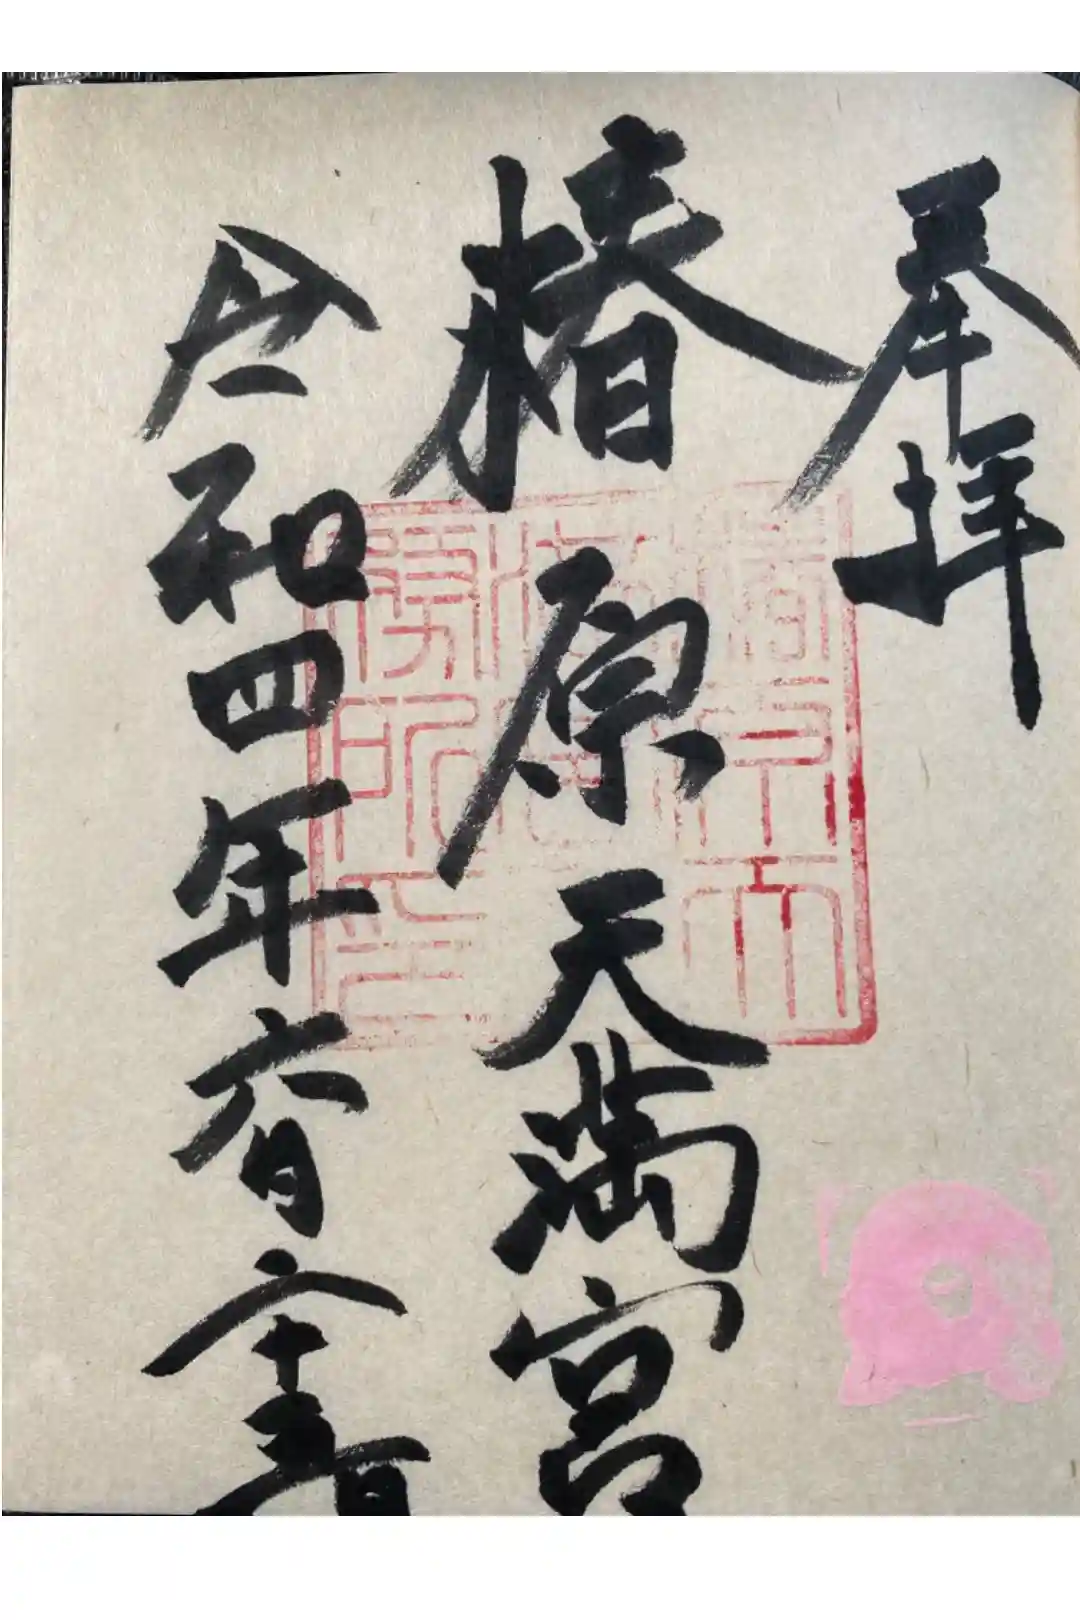 奉拝
椿原天満宮
令和四年六月